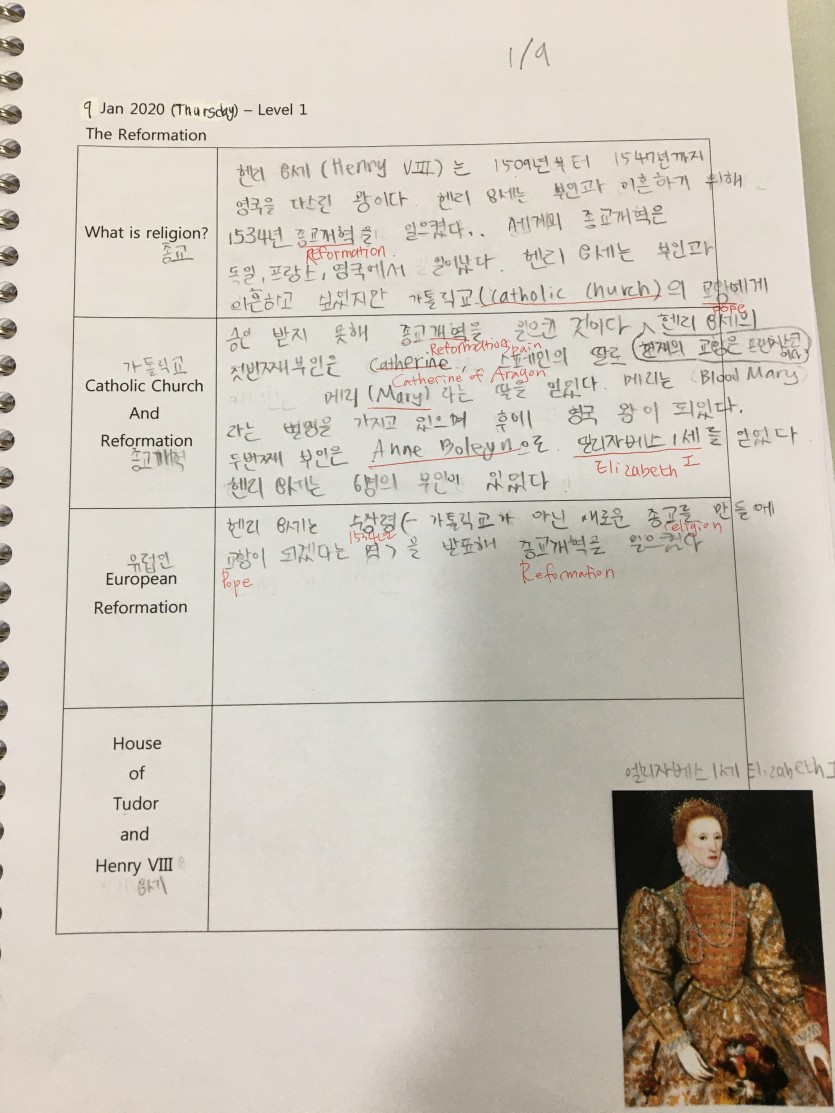 1/9
9 Jan 2020 (Thursday) – Level 1
The Reformation
What is religion?
종교
헨리 8세 (Henry VIII)는 1509년부터 1547년까지
영국을 다스린 왕이다. 헨리 8세는 부인과 이혼하기 위해
1534년 종교개혁을 일으켰다.. 세계의 종교개혁은
Reformation
독일, 프랑스, 영국에서 일어났다. 헨리 8세는 부인과
이혼하고 싶었지만 가톨릭교(Catholic Church)의 교황에게
pope
가톨릭교
Catholic Church
And
Reformation
종교개혁
승인 받지 못해 종교개혁을 일으킨 것이다 헨리 8세의
Reformation Spain
첫번째 부인은 Catherine, 스페인의 딸로 (현재의 교황은
Catherine of Aragon
메리 (Mary) 라는 딸을 얻었다. 메리는 (Blood Mary)
라는 별명을 가지고 있으며 후에 영국 왕이 되었다.
두번째 부인은 Anne Boleyn으로 엘리자베스 1세를 얻었다
Elizabeth I
헨리 8세는 6명의 부인이 있었다.
유럽인
European
Reformation
헨리 8세는 수장령(- 가톨릭교가 아닌 새로운 종교를 만들에
1534년 religion
교황이 되겠다는 법)을 발표해 종교개혁을 일으켰다
Pope Reformation
House
of
Tudor
and
Henry VIII
8세
엘리자베스 1세 Elizabeth I